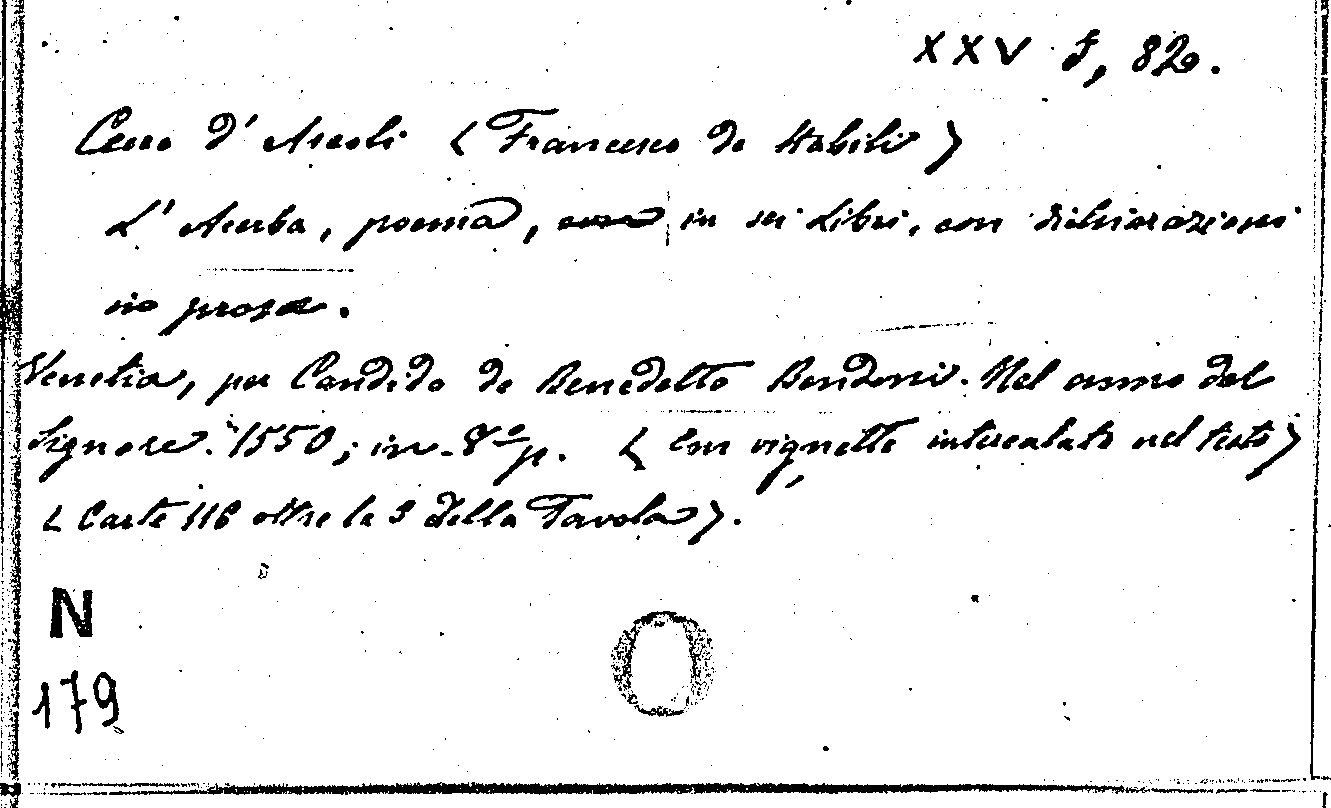 XXV F, 82.
Cecco d'Ascoli (Francesco de Stabili)
L'Acerba, poema, in sei libri, con dichiarazioni
in prosa.
Venetia, per Candido de Benedetto Bendoni. Nel anno del
Signore. 1550; in-8º p. (Con vignette intercalate nel testo)
(Carte 116 oltre le 3 della Tavola).
N
179